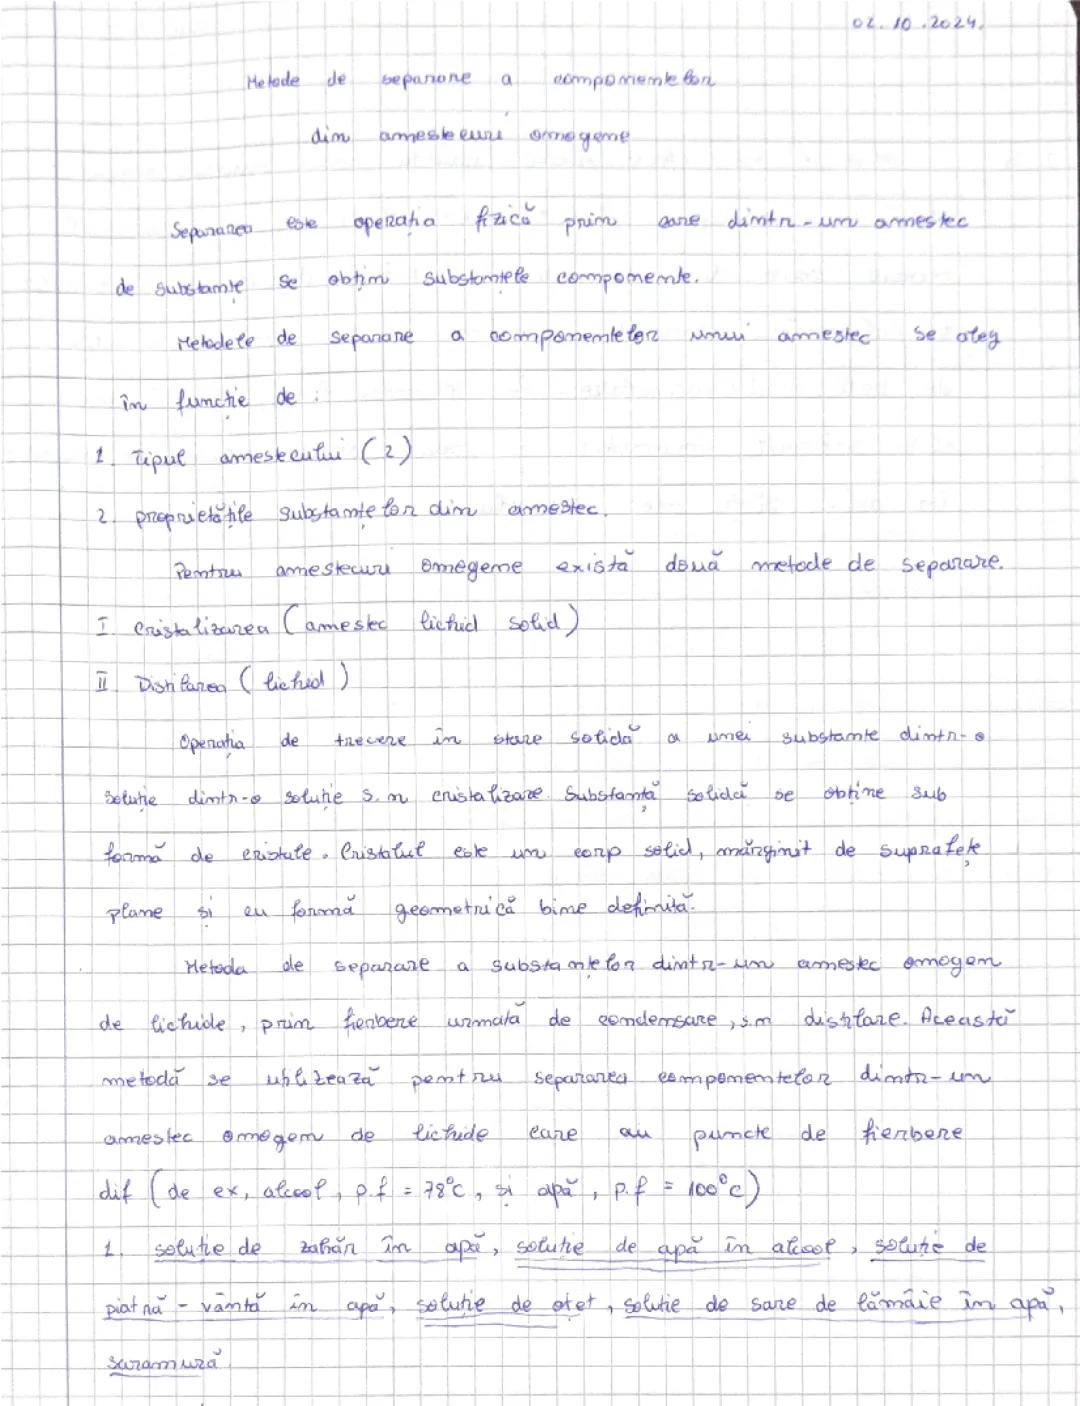 02.10.2024.
Metode de separare a componentelor
din amestecuri omogene
Separarea este operația fizică prin care dintr-un amestec
de substanțe se obțin substanțele componente.
Metodele de separare a componentelor unui amestec se aleg
în funcție de :
1. Tipul amestecului (2)
2. proprietățile substanțelor din amestec.
Pentru amestecuri omegene există două metode de separare.
I. Cristalizarea (amestec lichid solid)
II. Distilarea (lichid)
Operația de trecere în stare solidă a unei substanțe dintr-o
soluție dintr-o soluție s.n cristalizare. Substanța solidă se obține sub
formă de cristale. Cristalul este un corp solid, mărginit de suprafețe
plane și cu formă geometrică bine definită.
Metoda de separare a substanțelor dintr-un amestec omogen
de lichide, prin fierbere urmată de condensare, s.n distilare. Această
metodă se utilizează pentru separarea componentelor dintr-un
amestec omogen de lichide care au puncte de fierbere
dif (de ex, alcool, p.f = 78°C, și apă, p.f = 100°C)
1. soluție de zahăr în apă, soluție de apă în alcool, soluție de
piatră-vânătă în apă, soluție de oțet, soluție de sare de lămâie în apă,
saramură